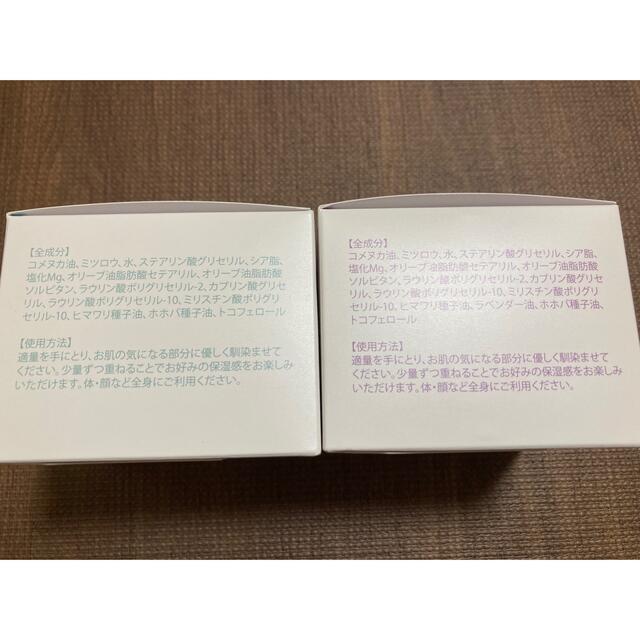 【全成分】
コメヌカ油、ミツロウ、水、ステアリン酸グリセリル、シア脂、
塩化Mg、オリーブ油脂肪酸セテアリル、オリーブ油脂肪酸
ソルビタン、ラウリン酸ポリグリセリル-2、カプリン酸グリセ
リル、ラウリン酸ポリグリセリル-10、ミリスチン酸ポリグリ
セリル-10、ヒマワリ種子油、ホホバ種子油、トコフェロール
【使用方法】
適量を手にとり、お肌の気になる部分に優しく馴染ませて
ください。少量ずつ重ねることでお好みの保湿感をお楽しみ
いただけます。体・顔など全身にご利用ください。
【全成分】
コメヌカ油、ミツロウ、水、ステアリン酸グリセリル、シア脂、
塩化Mg、オリーブ油脂肪酸セテアリル、オリーブ油脂肪酸
ソルビタン、ラウリン酸ポリグリセリル-2、カプリン酸グリセ
リル、ラウリン酸ポリグリセリル-10、ミリスチン酸ポリグリ
セリル-10、ヒマワリ種子油、ラベンダー油、ホホバ種子油、
トコフェロール
【使用方法】
適量を手にとり、お肌の気になる部分に優しく馴染ませて
ください。少量ずつ重ねることでお好みの保湿感をお楽しみ
いただけます。体・顔など全身にご利用ください。